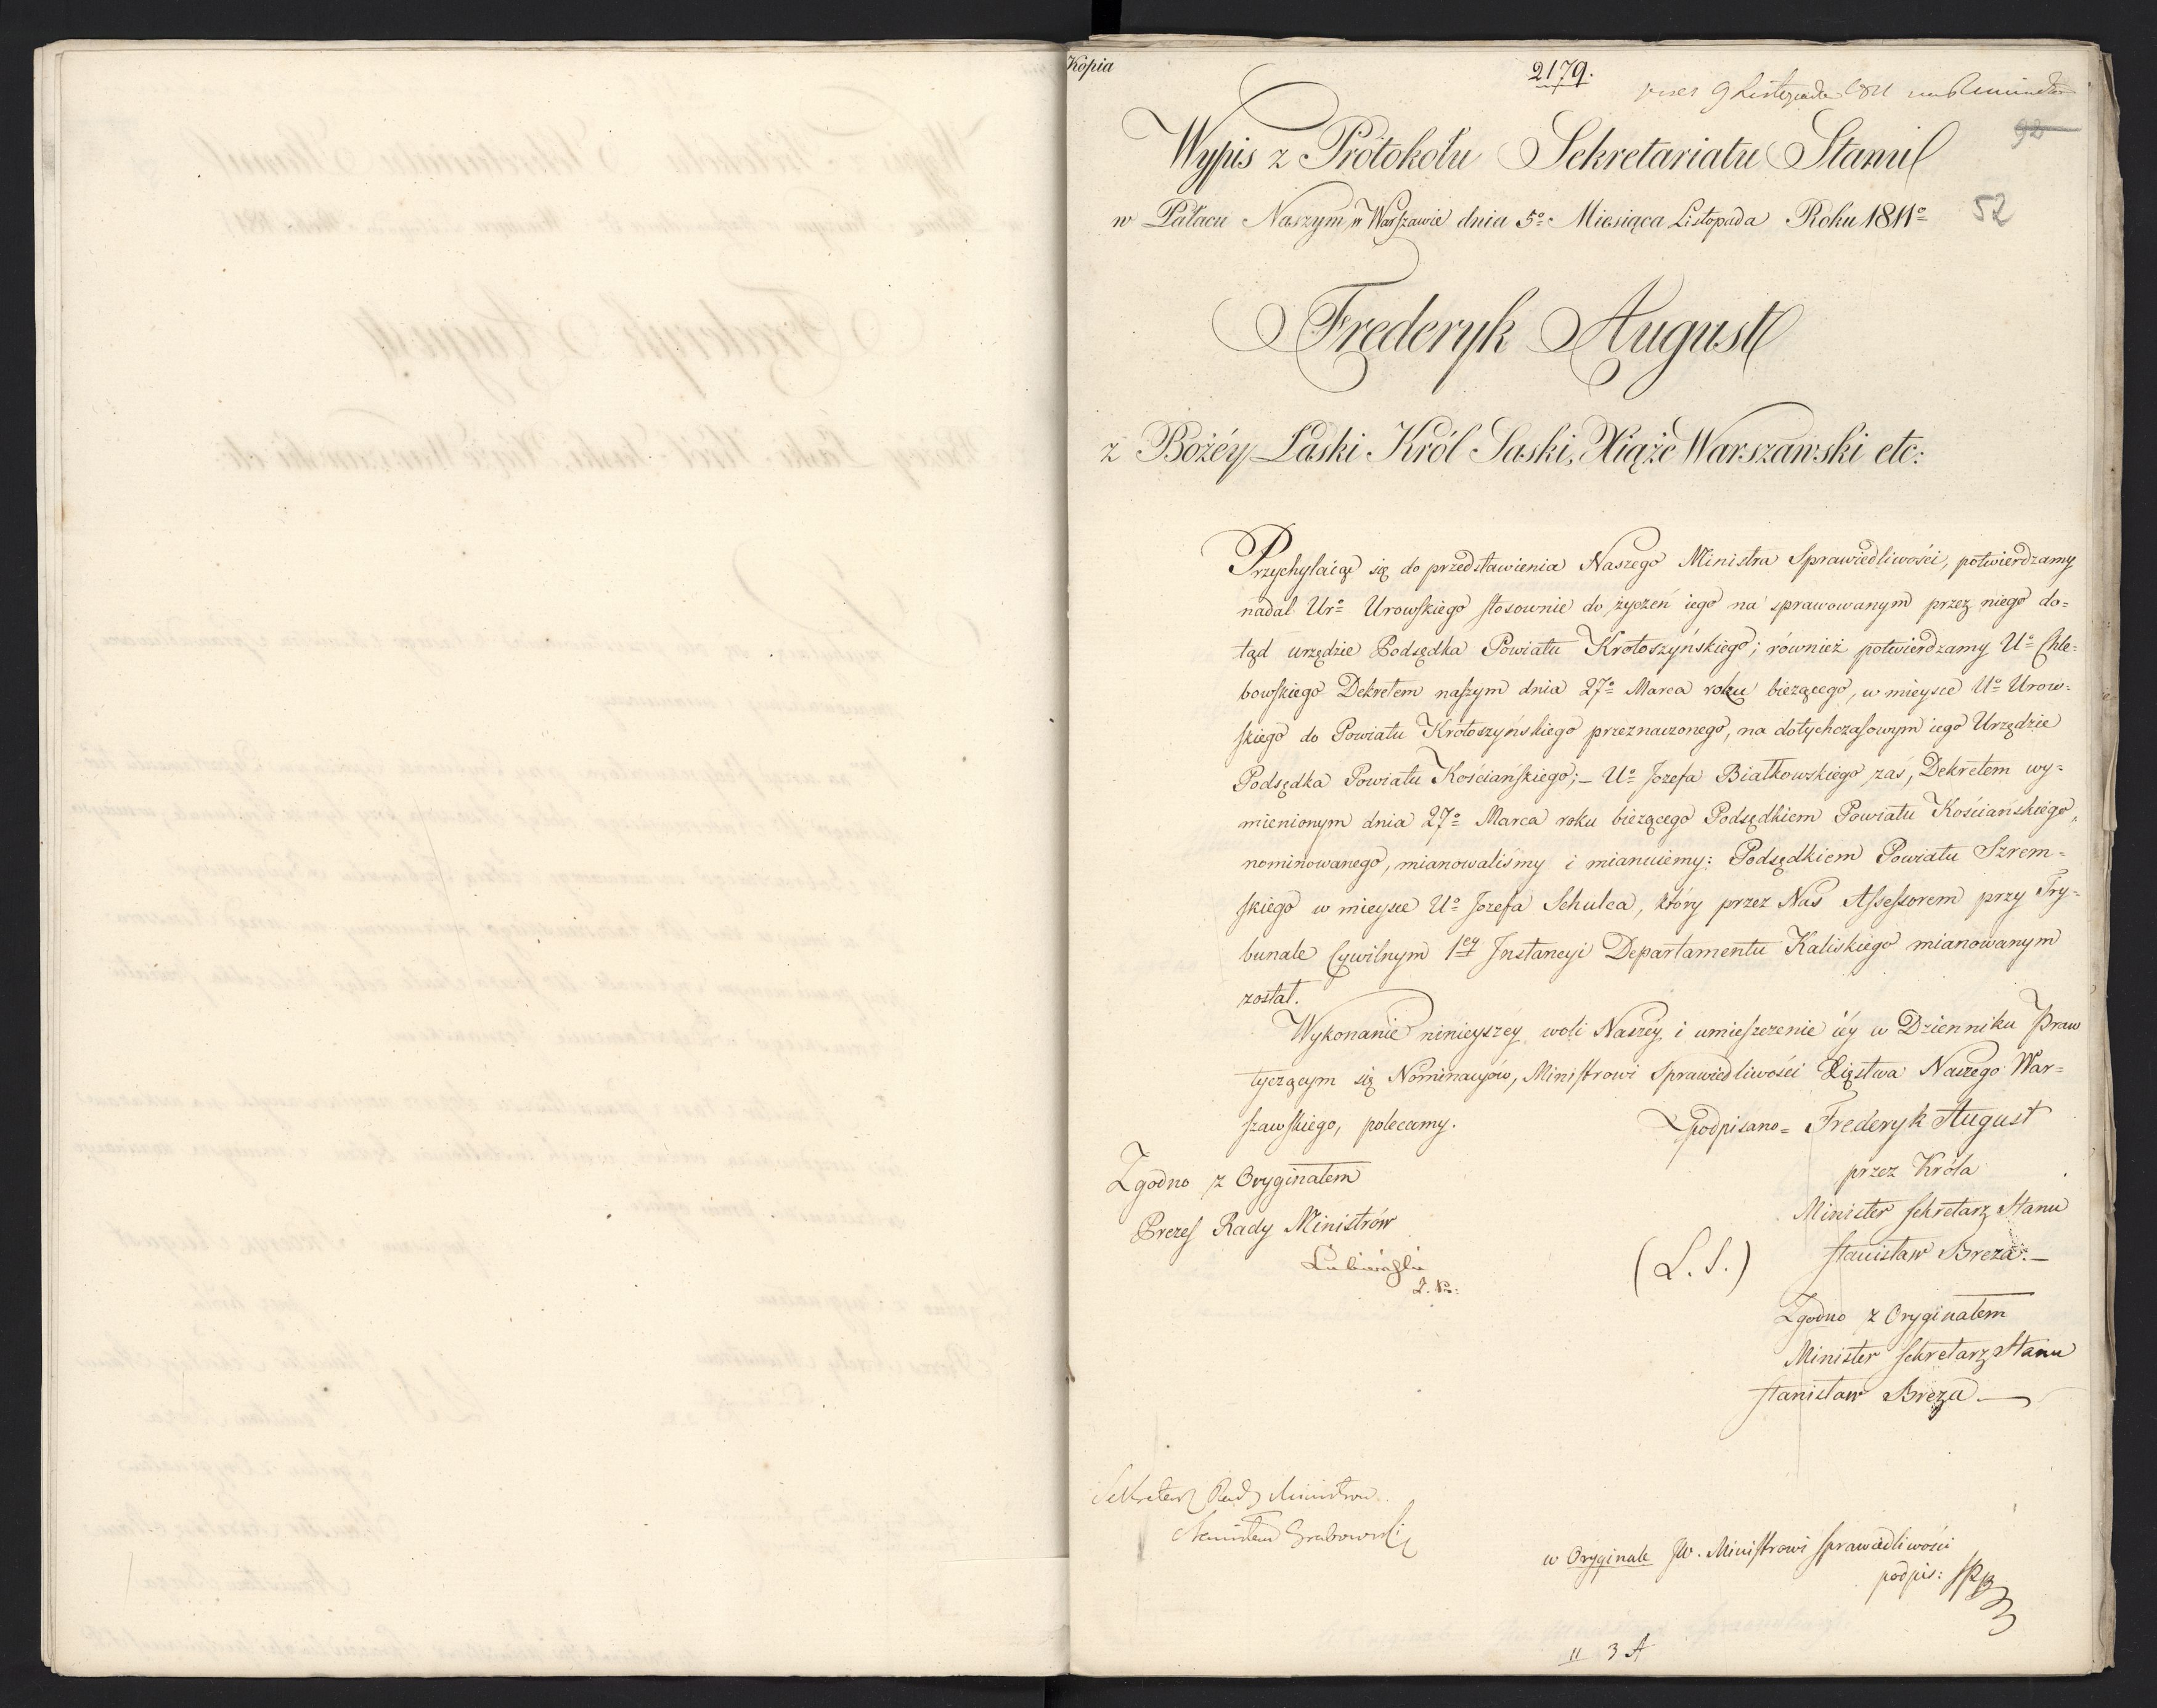 Kopia
2179.
9 Listopada 1811
92
Wypis z Protokołu Sekretariatu Stanu
w Pałacu Naszym w Warszawie dnia 5º Miesiąca Listopada Roku 1811º
52
Frederyk August
z Bożéy Łaski Król Saski, Xiąże Warszawski etc:
Przychylaiąc się do przedstawienia Naszego Ministra Sprawiedliwości, potwierdzamy
nadal Urº Urowskiego stosownie do życzeń iego na sprawowanym przez niego do=
tąd urzędzie Podsędka Powiatu Krotoszyńskiego; również potwierdzamy Uº Chle=
bowskiego Dekretem naszym dnia 27º Marca roku bieżącego, w mieysce Uº Urow=
skiego do Powiatu Krotoszyńskiego przeznaczonego, na dotychczasowym iego Urzędzie
Podsędka Powiatu Kościańskiego; – Uº Jozefa Białkowskiego zaś, Dekretem wy=
mienionym dnia 27º Marca roku bieżącego Podsędkiem Powiatu Kościańskiego,
nominowanego, mianowaliśmy i mianuiemy: Podsędkiem Powiatu Szrem=
skiego w mieysce Uº Jozefa Schulca, który przez Nas Assessorem przy Try=
bunale Cywilnym 1ey Instancyi Departamentu Kaliskiego mianowanym
został.
Wykonanie ninieyszéy woli Naszéy i umieszczenie iéy w Dzienniku Praw
tyczącym się Nominacyów, Ministrowi Sprawiedliwości Xięstwa Naszego War=
szawskiego, polecamy.
podpisano = Frederyk August
przez Króla
Minister Sekretarz Stanu
(L. S.) Stanisław Breza. –
Zgodno z Oryginałem
Prezes Rady Ministrów
Zgodno z Oryginałem
Minister Sekretarz Stanu
Stanisław Breza –
Sekretarz Rady Ministrow
Stanisław Grabowski
w Oryginale JW. Ministrowi Sprawiedliwości
podpis:
11 3 A